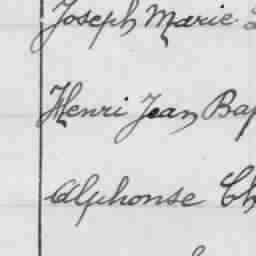 Joseph Marie
Henri Jean Bap
Alphonse Ch